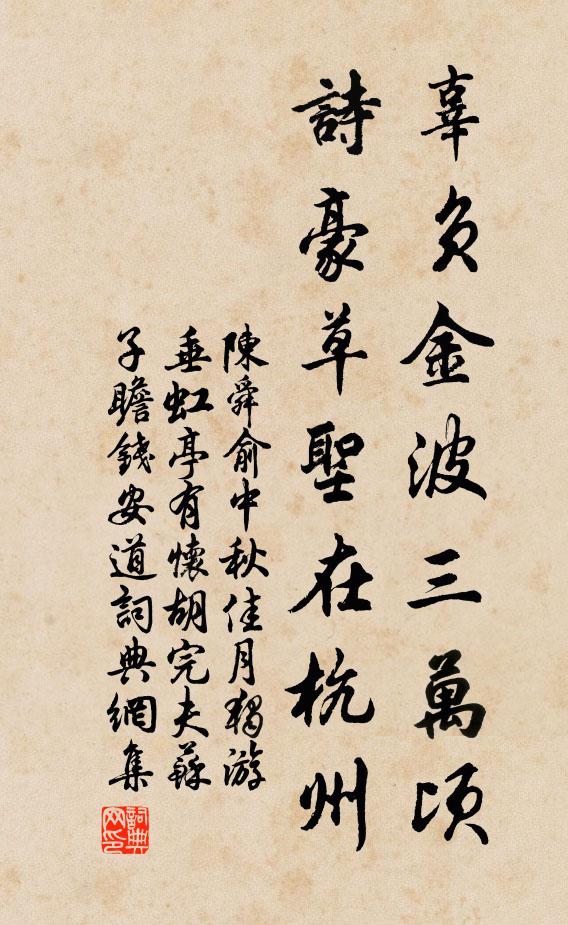 辜負金波三萬頃
詩豪草聖在杭州
陳舜俞中秋佳月獨游
垂虹亭有懷胡完夫蘇
子瞻錢安道詞典網集
詞典
网印